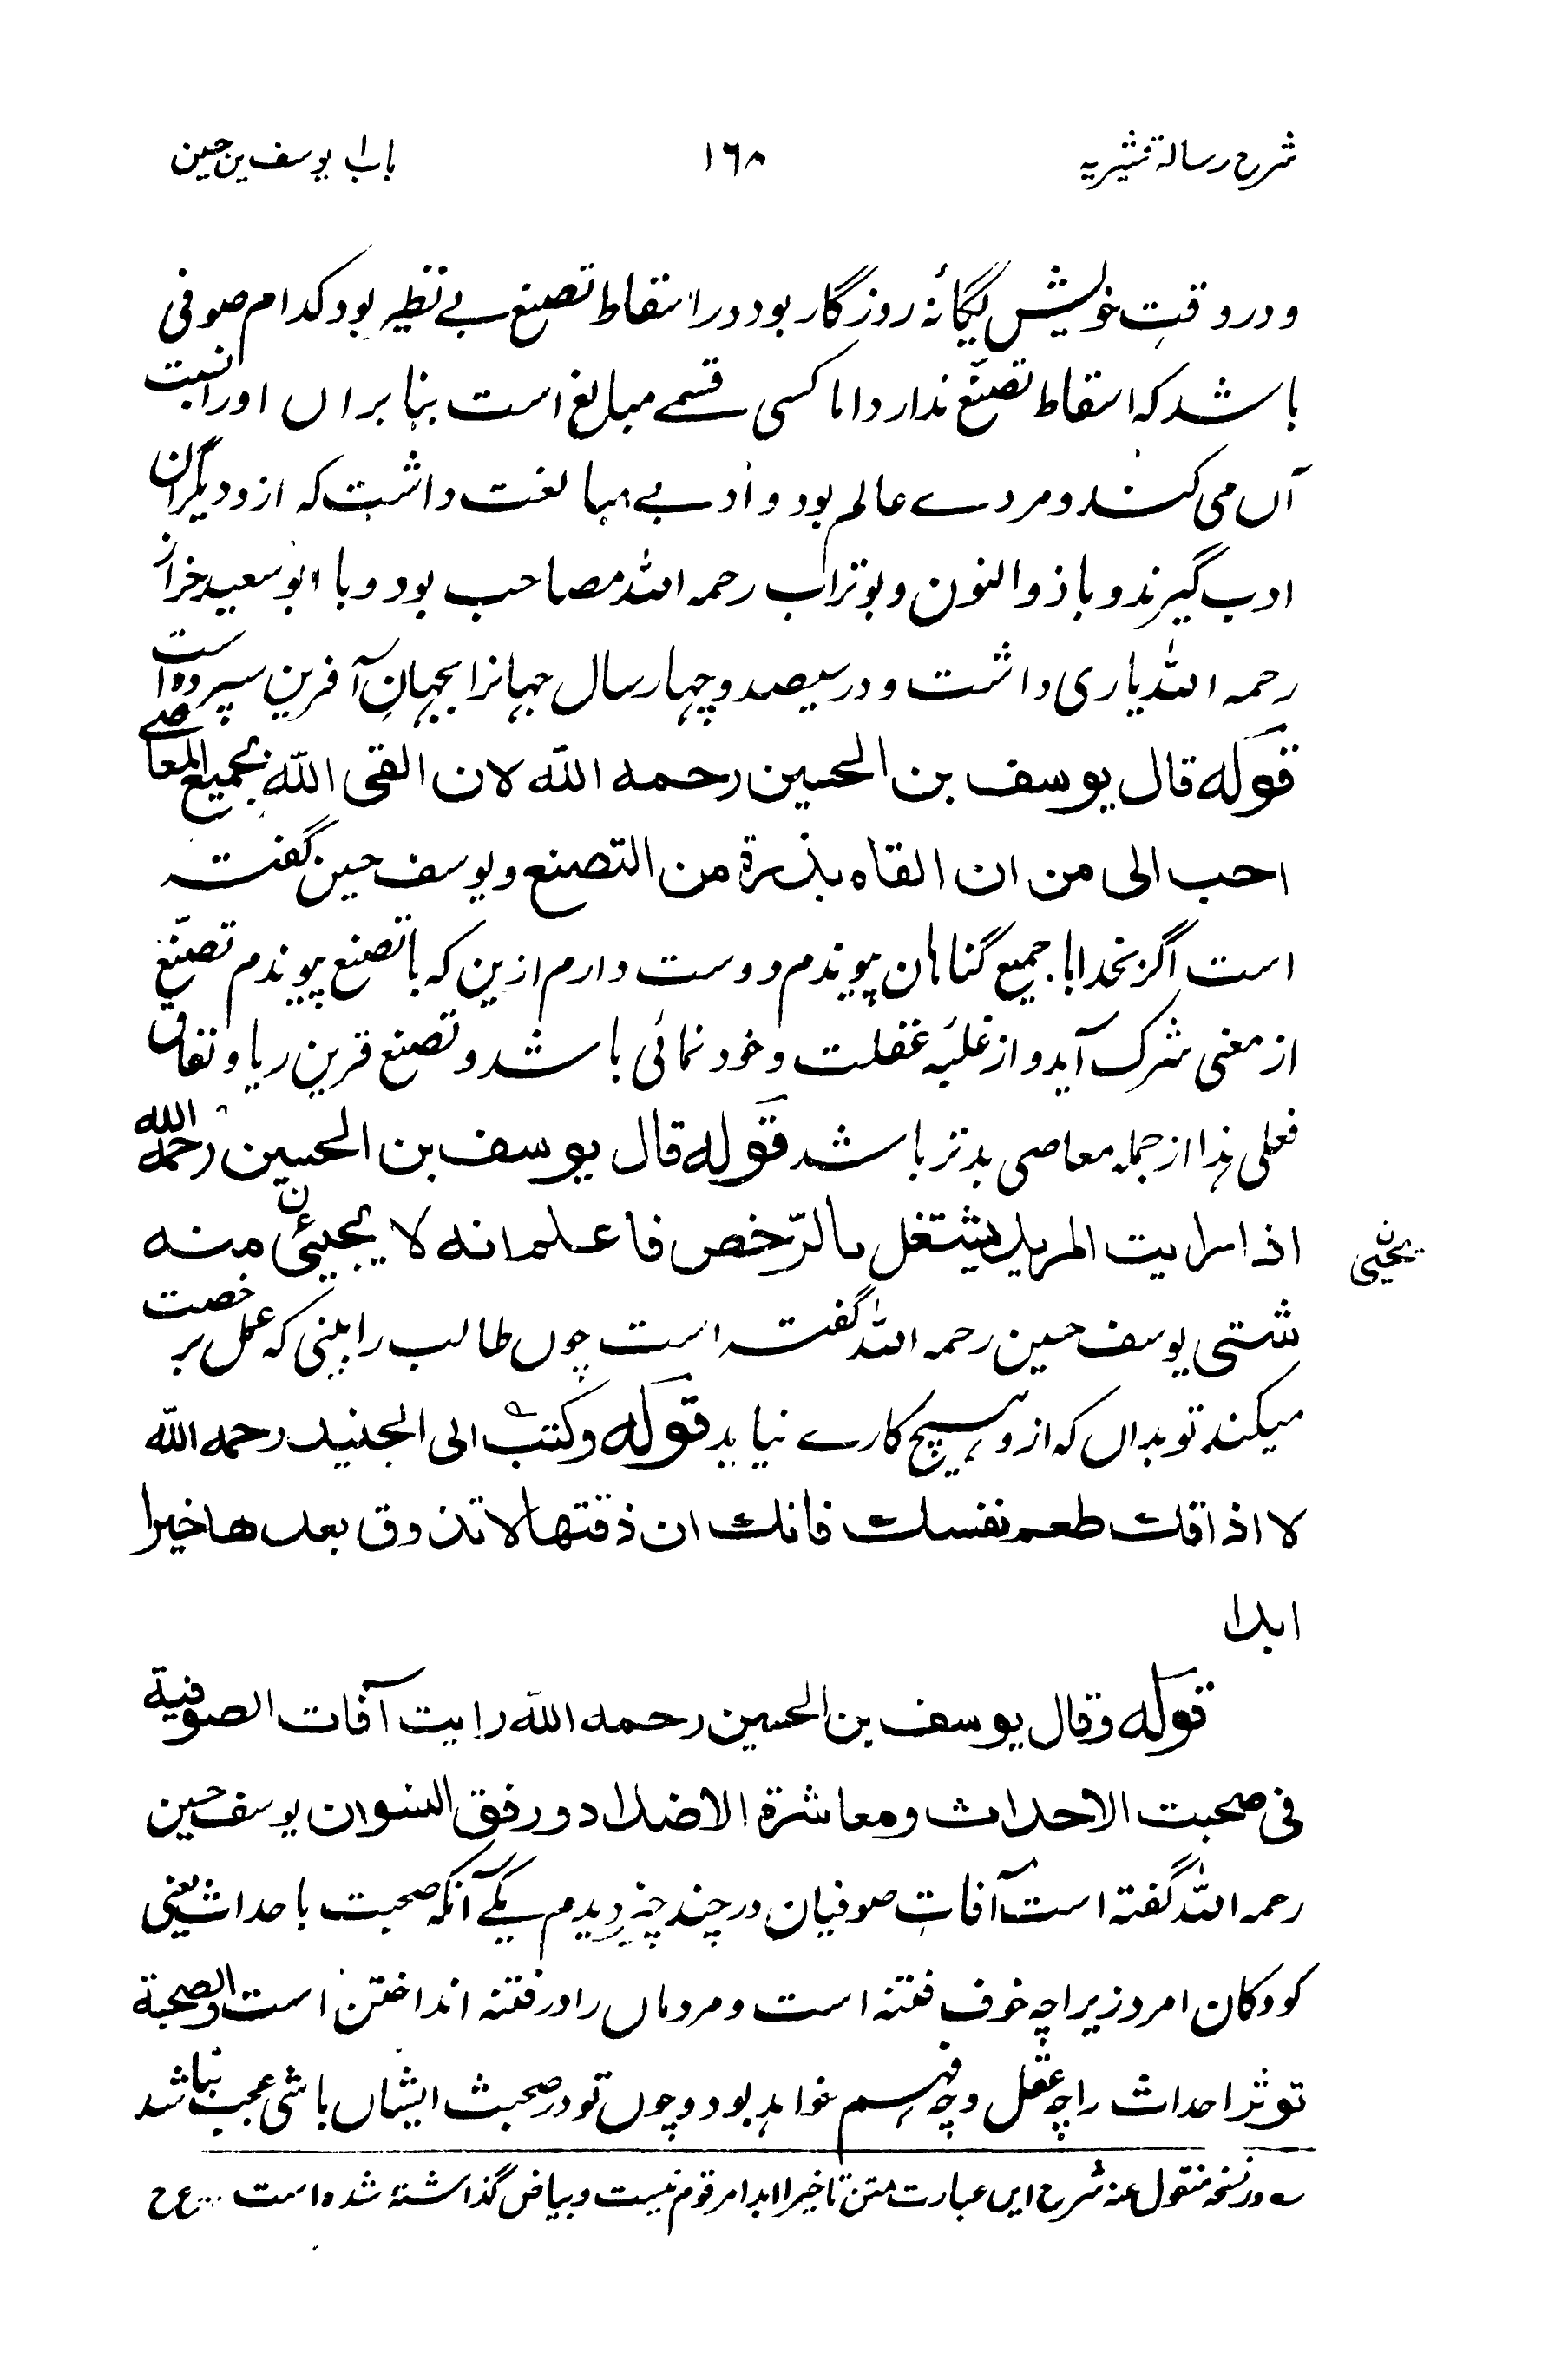 شرح رسالۃ قشیریہ ۱۶۸ باب ا یوسف بن حسین
و در وقتِ خویش یگانۂ روزگار بود در اسقاط تصنع بے نظیر بود کدام صوفی
باشد کہ اسقاط تصنّع ندارد اما کسی قسمے مبالغ است بنا براں او را نسبت
آں می کنند و مردے عالم بود و ادبے مبالغت داشت کہ ازو دیگران
ادب گیرند و با ذوالنون و بوتراب رحمہ اللہ مصاحب بود و با ابو سعید خراز
رحمہ اللہ یاری داشت و در سیصد و چہار سال جہانرا بجہانِ آفرین سپردہ است
قولہ قال یوسف بن الحسین رحمہ اللہ لان القی اللہ بجمیع المعاصے
احب الی من ان القاہ بذرۃ من التصنع و یوسف حسین گفتہ
است اگر بخدا با جمیع گناہان پیوندم دوست دارم ازین کہ با تصنع پیوندم تصنّع
از معنی شرک آید و از غلبۂ غفلت و خود نمائی باشد و تصنع قرین ریا و نفاق
فعلی ہذا از جملہ معاصی بدتر باشد قولہ قال یوسف بن الحسین رحمہ اللہ
اذا رایت المرید یشتغل بالرّخص فاعلم انہ لا یجیئن منہ
یجیئن
شئی یوسف حسین رحمہ اللہ گفتہ است چوں طالب را بینی کہ عمل بر خصت
میکند تو بداں کہ ازو ہیچ کارے نیاید قولہ و کتب الی الجنید رحمہ اللہ
لا اذاقک طعم نفسک فانک ان ذقتھا لا تذوق بعدھا خیرا
ابدا
قولہ و قال یوسف بن الحسین رحمہ اللہ رایت آفات الصوفیۃ
فی صحبت الاحداث و معاشرۃ الاضداد و رفق النسوان یوسف حسین
رحمہ اللہ گفتہ است آفاتِ صوفیان در چند چیز دیدم یکے آنکہ صحبت با حداث یعنی
کودکان امرد زیراچہ خوف فتنہ است و مردماں را در فتنہ انداختن است والصحبۃ
توثر احداث را چہ عقل و چہ فہم خواہد بود و چوں تو در صحبت ایشاں باشی عجب نباشد
؎ در نسخہ منقول عنہ شرح ایں عبارت متن تا خیرا ابدا مرقوم نیست و بیاض گذاشتہ شدہ است ... ع ح